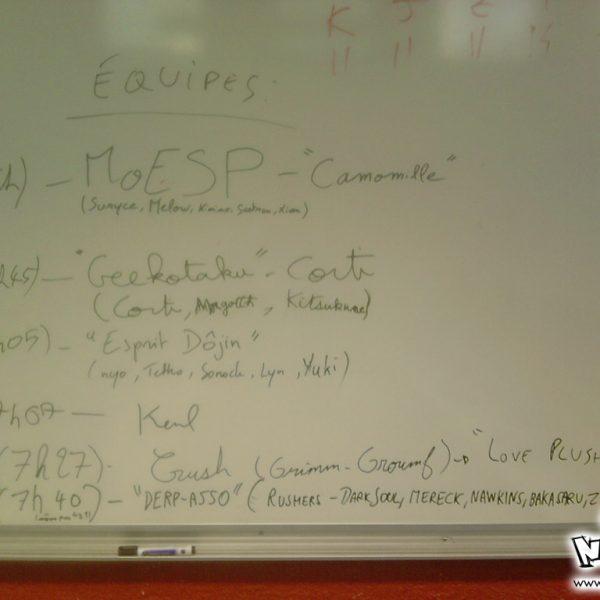 K J E
11 11 11
ÉQUIPES:
h) — MoESP — "Camomille"
(Sunyce, Melow,
h45) — "Geekotaku" - Corti
(Corti, Kitsukune)
h05) — "Esprit Dôjin"
(nyo, Tetho, Sonock, Lyn, Yuki)
7h07 — Keul
(7h27) - Crush (Grimm-Groumf) → "LOVE PLUSH
(7h40) - "DERP-ASSO" (RUSHERS - DARKSOUL, MERECK, NAWKINS, BAKASARU, Z
www.